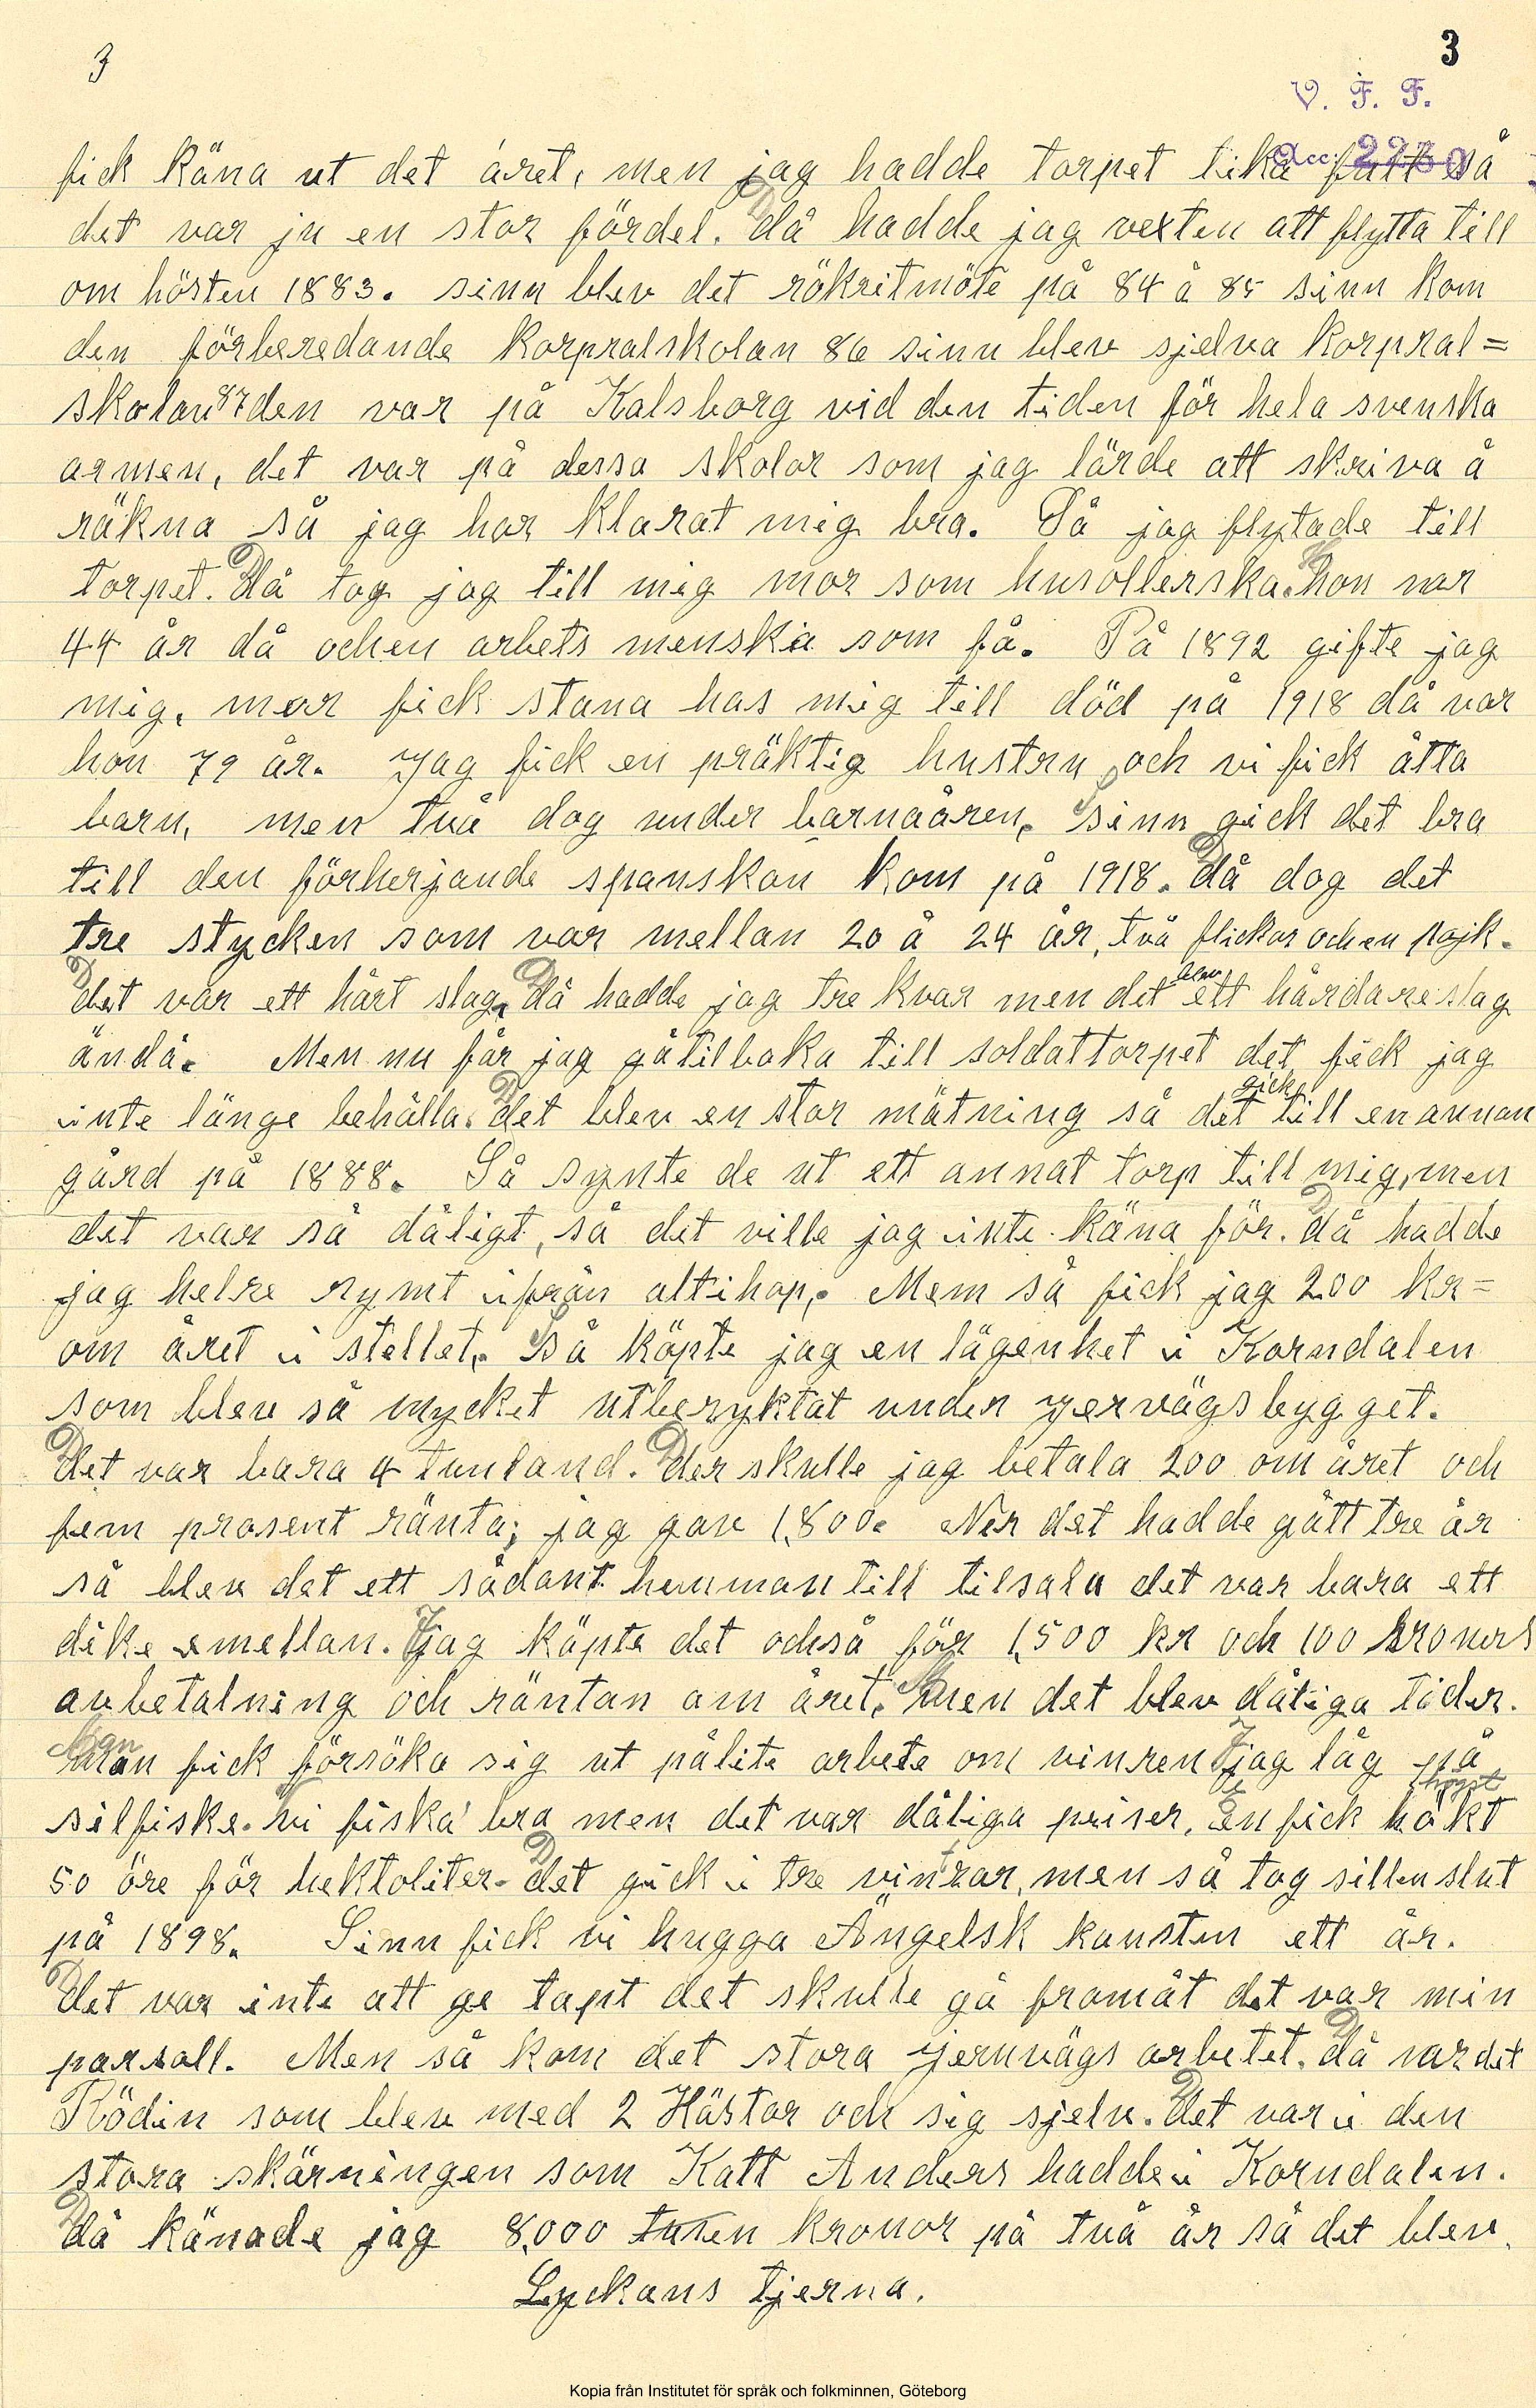 3
3
V. F. F.
Acc.
fick käna ut det året, men jag hadde torpet lika fullt så
det var ju en stor fördel. då hadde jag vexten att flytta till
om hösten 1883. sinn blev det rökritmöte på 84 å 85 sinn kom
den förberedande Korpralskolan 86 sinn blev sjelva Korpral=
skolan 87 den var på Kalsborg vid den tiden för hela svenska
armen, det var på dessa skolor som jag lärde att skriva å
räkna så jag har klarat mig bra. Så jag flytade till
torpet. Då tog jag till mig mor som husollerska. hon var
44 år då ochen arbets menska som få. På 1892 gifte jag
mig, mor fick stana has mig till död på 1918 då var
hon 79 år. Jag fick en präktig hustru och vi fick åtta
barn, men två dog under barnaåren. Sinn gick det bra
till den förherjande spanskan kom på 1918. då dog det
tre stycken som var mellan 20 å 24 år, två flickor ochen pojk.
Det var ett hårt slag, då hadde jag tre kvar men det blev ett hårdare slag
ändå. Men nu får jag gåtilbaka till soldattorpet det fick jag
inte länge behålla. det blev en stor mätning så det gick till en annan
gård på 1888. Så synte de ut ett annat torp till mig, men
det var så dåligt, så det ville jag inte käna för. då hadde
jag helre rymt ifrån altihop. Mem så fick jag 200 kr=
om året i stellet. Så köpte jag en lägenhet i Korndalen
som blev så mycket utberyktat under yervägsbygget.
Det var bara 4 tunland. Der skulle jag betala 200 om året och
fem prosent ränta; jag gav 1,800. Ner det hadde gått tre år
så blev det ett sådant hemman till tilsalu det var bara ett
dike emellan. Jag köpte det också för 1,500 kr och 100 kroners
avbetalning och räntan om året. Men det blev dåliga tider.
Man fick försöka sig ut pålite arbete om vinren Jag låg på
silfiske. vi fiska' bra men det var dåliga priser. En fick högst håkt
50 öre för hektoliter. Det gick i tre vintrar, men så tog sillen slut
på 1898. Sinn fick vi hugga Ängelsk kansten ett år.
Det var inte att ge tapt det skulle gå fromåt det var min
parsoll. Men så kom det stora jernvägs arbetet. då var det
Rödin som blev med 2 Hästar och sig sjelv. Det var i den
stora skärningen som Katt Anders hadde i Korndalen.
Då känade jag 8,000 tusen kronor på två år så det blev
Lyckans tjerna.
Kopia från Institutet för språk och folkminnen, Göteborg